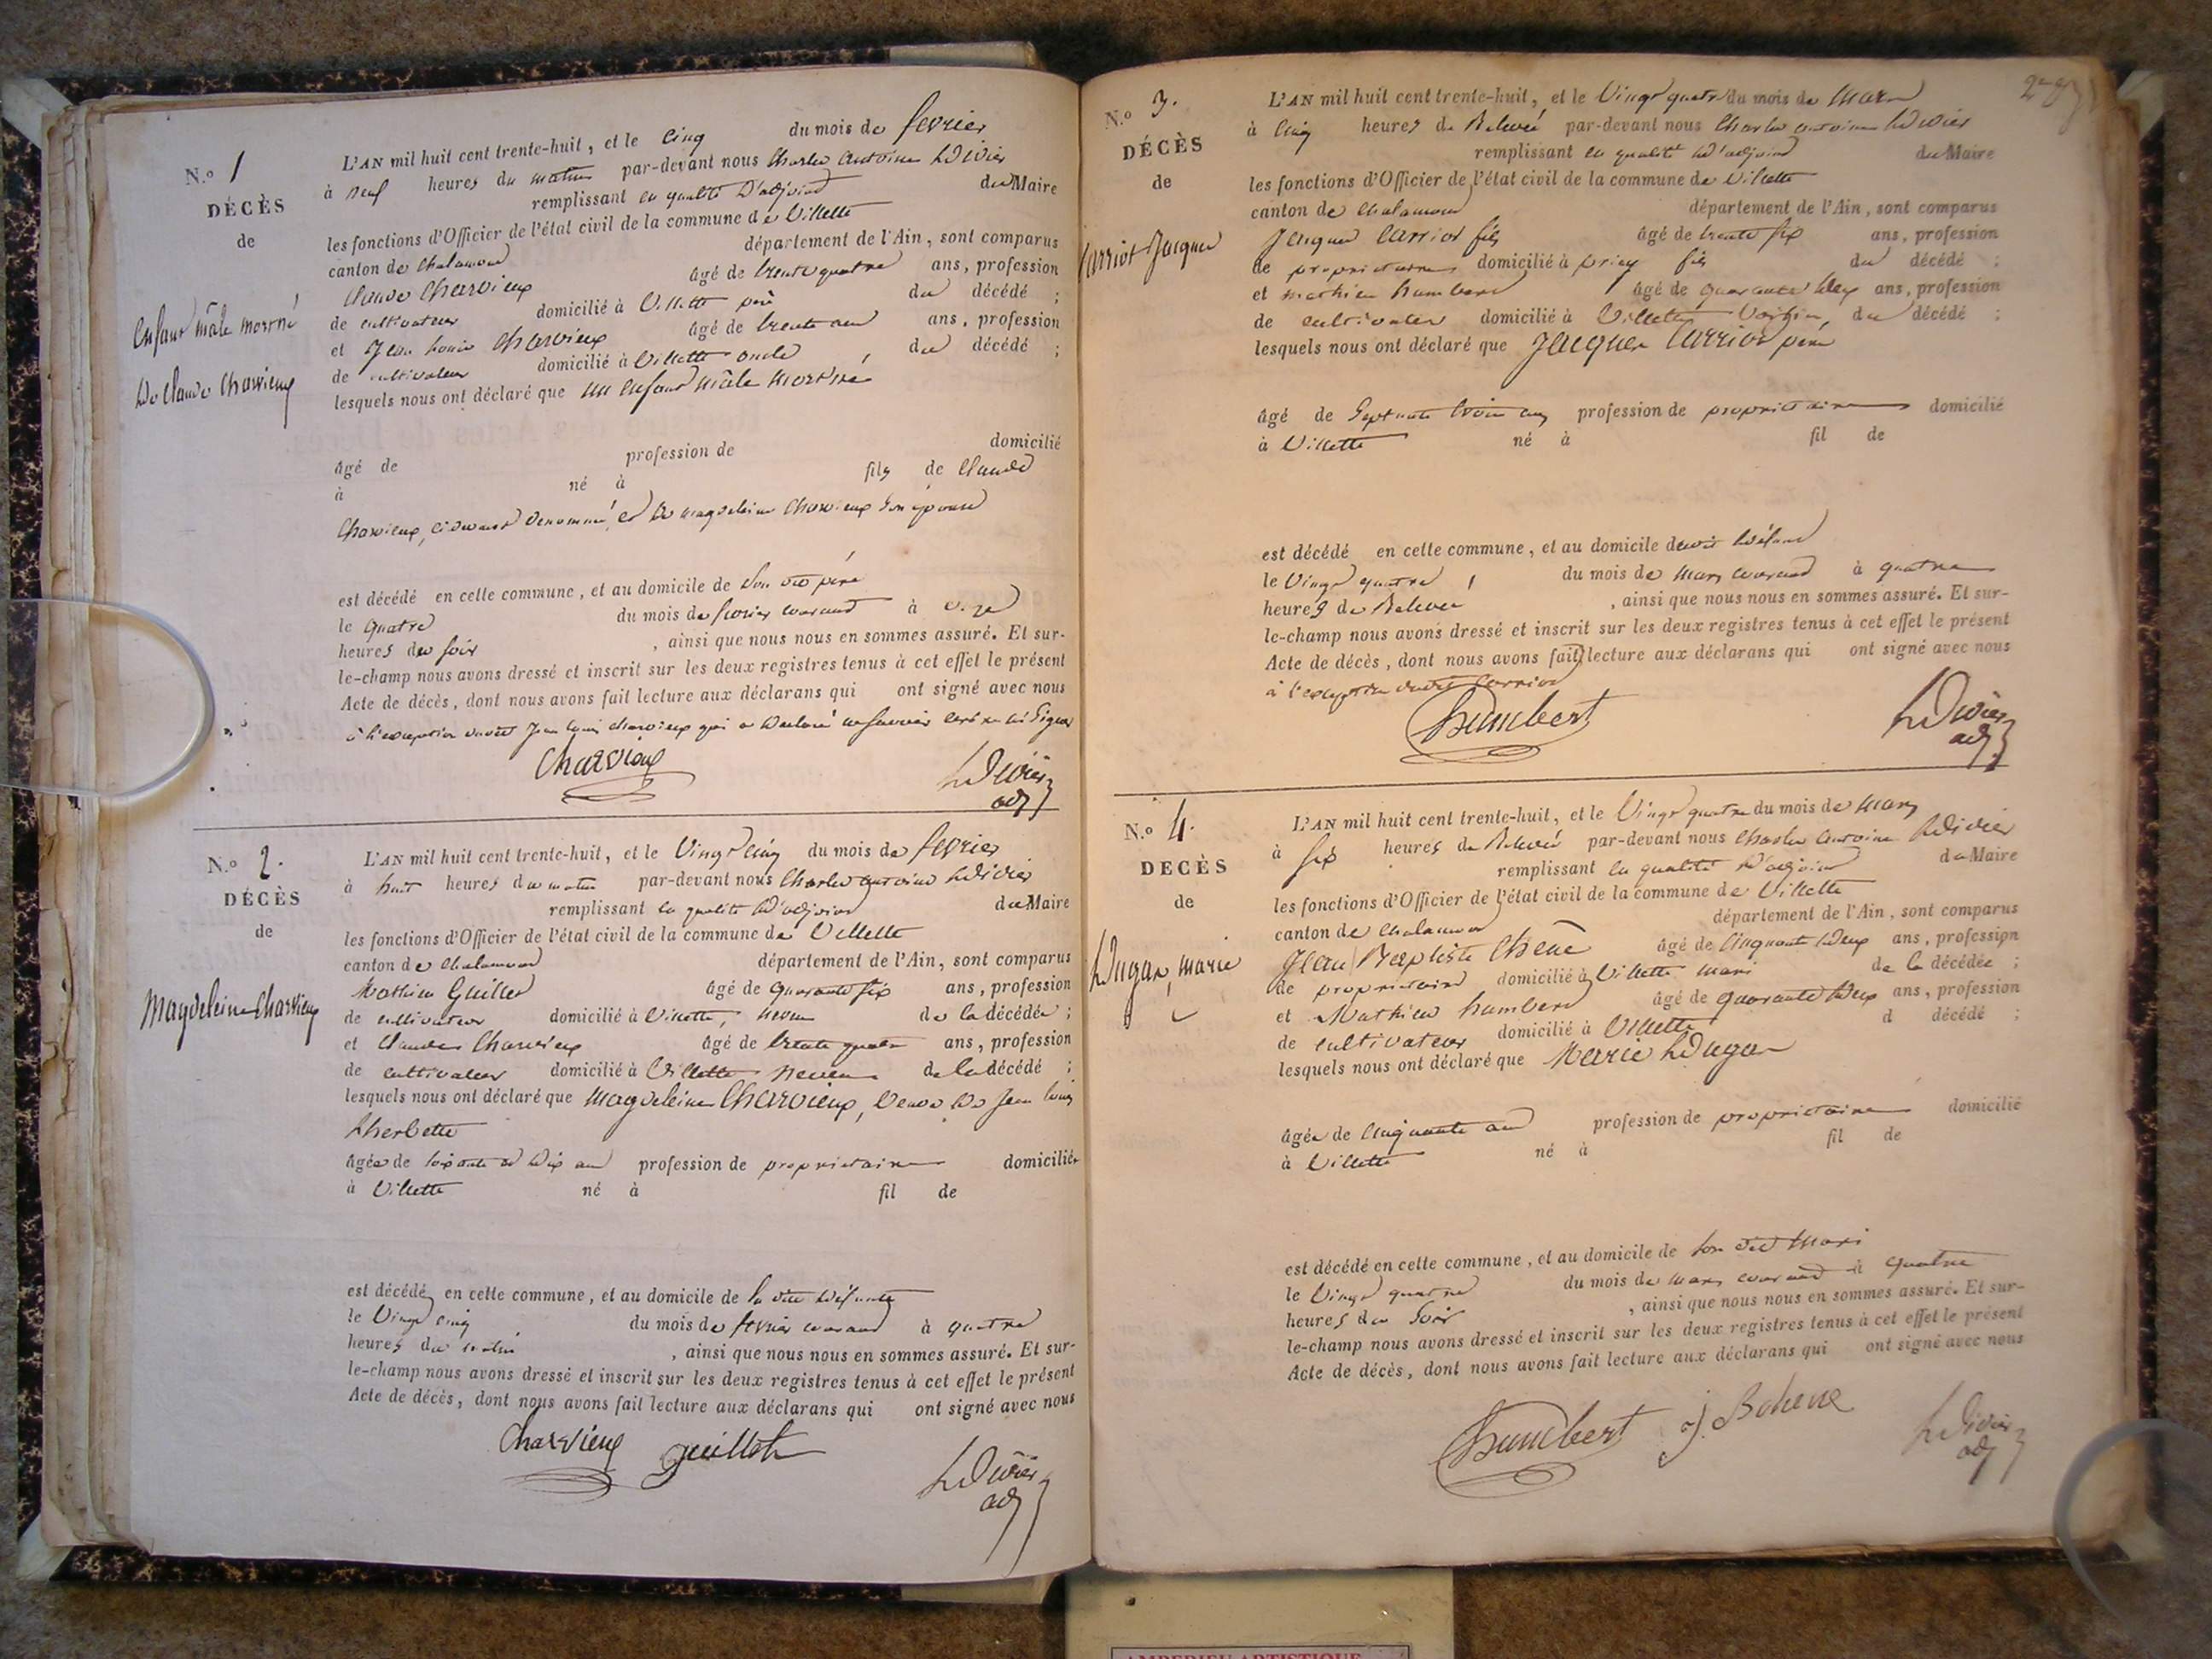 N.º 1
DÉCÈS
de
Enfant mâle mort né
De Claude Charvieux
L'AN mil huit cent trente-huit, et le cinq du mois de fevrier
à neuf heures du matin par-devant nous Charles antoine Didier
remplissant en qualité D'adjoint du Maire
les fonctions d'Officier de l'état civil de la commune de Villette
canton de Chalamont département de l'Ain, sont comparus
Claude Charvieux âgé de trente quatre ans, profession
de cultivateur domicilié à Villette père du décédé ;
et Jean Louis Charvieux âgé de trente ans ans, profession
de cultivateur domicilié à Villette oncle du décédé ;
lesquels nous ont déclaré que un enfant mâle mort né
âgé de profession de domicilié
à né à fils de Claude
Charvieux, cidevant denommé, et de magdeleine Charvieux son épouse
est décédé en cette commune, et au domicile de Son dit père
le quatre du mois de fevrier courant à onze
heures du soir , ainsi que nous nous en sommes assuré. Et sur-
le-champ nous avons dressé et inscrit sur les deux registres tenus à cet effet le présent
Acte de décès, dont nous avons fait lecture aux déclarans qui ont signé avec nous
à l'exception dudit Jean Louis charvieux qui a Declaré ne savoir écrire ni Signer
Charvieux
Didier
adj
N.º 2.
DÉCÈS
de
Magdeleine Charvieux
L'AN mil huit cent trente-huit, et le Vingt cinq du mois de fevrier
à huit heures du matin par-devant nous Charles antoine Didier
remplissant en qualité D'adjoint du Maire
les fonctions d'Officier de l'état civil de la commune de Villette
canton de Chalamont département de l'Ain, sont comparus
Mathieu Guillet âgé de quarante six ans, profession
de cultivateur domicilié à Villette, neveu de la décédée ;
et Claude Charvieux âgé de trente quatre ans, profession
de cultivateur domicilié à Villette neveu de la décédé ;
lesquels nous ont déclaré que magdeleine Charvieux, Veuve De Jean Louis
Lherbette
âgée de soixante et dix ans profession de propriétaire domiciliée
à Villette né à fil de
est décédé en cette commune, et au domicile de la dite Défunte
le Vingt cinq du mois de fevrier courant à quatre
heures du matin , ainsi que nous nous en sommes assuré. Et sur-
le-champ nous avons dressé et inscrit sur les deux registres tenus à cet effet le présent
Acte de décès, dont nous avons fait lecture aux déclarans qui ont signé avec nous
Charvieux Guillot
Didier
adj
N.º 3.
DÉCÈS
de
Carriot Jacques
L'AN mil huit cent trente-huit, et le Vingt quatre du mois de Mars
à cinq heures de Relevé par-devant nous Charles antoine Didier
remplissant en qualité D'adjoint du Maire
les fonctions d'Officier de l'état civil de la commune de Villette
canton de Chalamont département de l'Ain, sont comparus
Jacques Carriot fils âgé de trente six ans, profession
de propriétaire domicilié à priay fils du décédé ;
et mathieu humbert âgé de quarante deux ans, profession
de cultivateur domicilié à Villette Voisin du décédé ;
lesquels nous ont déclaré que Jacques Carriot père
âgé de Septante trois ans profession de propriétaire domicilié
à Villette né à fil de
est décédé en cette commune, et au domicile dudit Défunt
le Vingt quatre du mois de mars courant à quatre
heures de Relevé , ainsi que nous nous en sommes assuré. Et sur-
le-champ nous avons dressé et inscrit sur les deux registres tenus à cet effet le présent
Acte de décès, dont nous avons fait lecture aux déclarans qui ont signé avec nous
à l'exception dudit Carriot
Humbert
Didier
adj
N.º 4.
DECÈS
de
Dugas, marie
L'AN mil huit cent trente-huit, et le Vingt quatre du mois de Mars
à six heures de Relevé par-devant nous Charles antoine Didier
remplissant en qualité D'adjoint du Maire
les fonctions d'Officier de l'état civil de la commune de Villette
canton de Chalamont département de l'Ain, sont comparus
Jean Baptiste Chêne âgé de Cinquante deux ans, profession
de propriétaire domicilié à Villette mari de la décédée ;
et Mathieu humbert âgé de quarante deux ans, profession
de cultivateur domicilié à Villette d décédé ;
lesquels nous ont déclaré que Marie Dugas
âgée de Cinquante ans profession de propriétaire domicilié
à Villette né à fil de
est décédé en cette commune, et au domicile de son dit Mari
le Vingt quatre du mois de mars courant à quatre
heures du Soir , ainsi que nous nous en sommes assuré. Et sur-
le-champ nous avons dressé et inscrit sur les deux registres tenus à cet effet le présent
Acte de décès, dont nous avons fait lecture aux déclarans qui ont signé avec nous
Humbert J. Bchene
Didier
adj